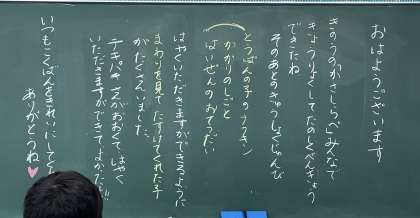 おはようございます
きのうの「かさじぞう」みんなで
きょうりょくしてたのしくべんきょう
できたね
そのあとのきゅうしょくじゅんび
とうばんの子のナフキン
かかりのしごと
はいぜんのおてつだい
はやくいただきますができるように
まわりを見てたすけてくれた子
がたくさんいました。
テキパキさんがおおくて、はやく
いただきますができてよかった!!
いつもこくばんをきれいにしてく
ありがとうね